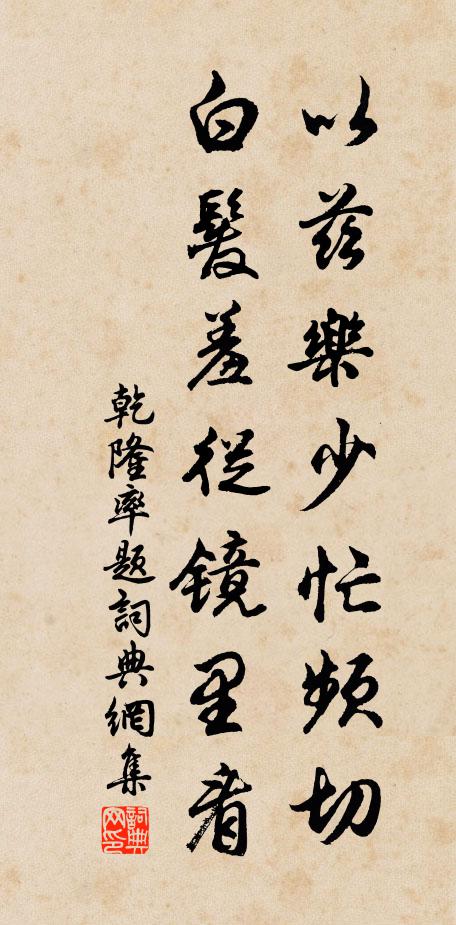 以茲樂少忙頻切
白髮羞從鏡里看
乾隆率題詞典網集
詞典網印